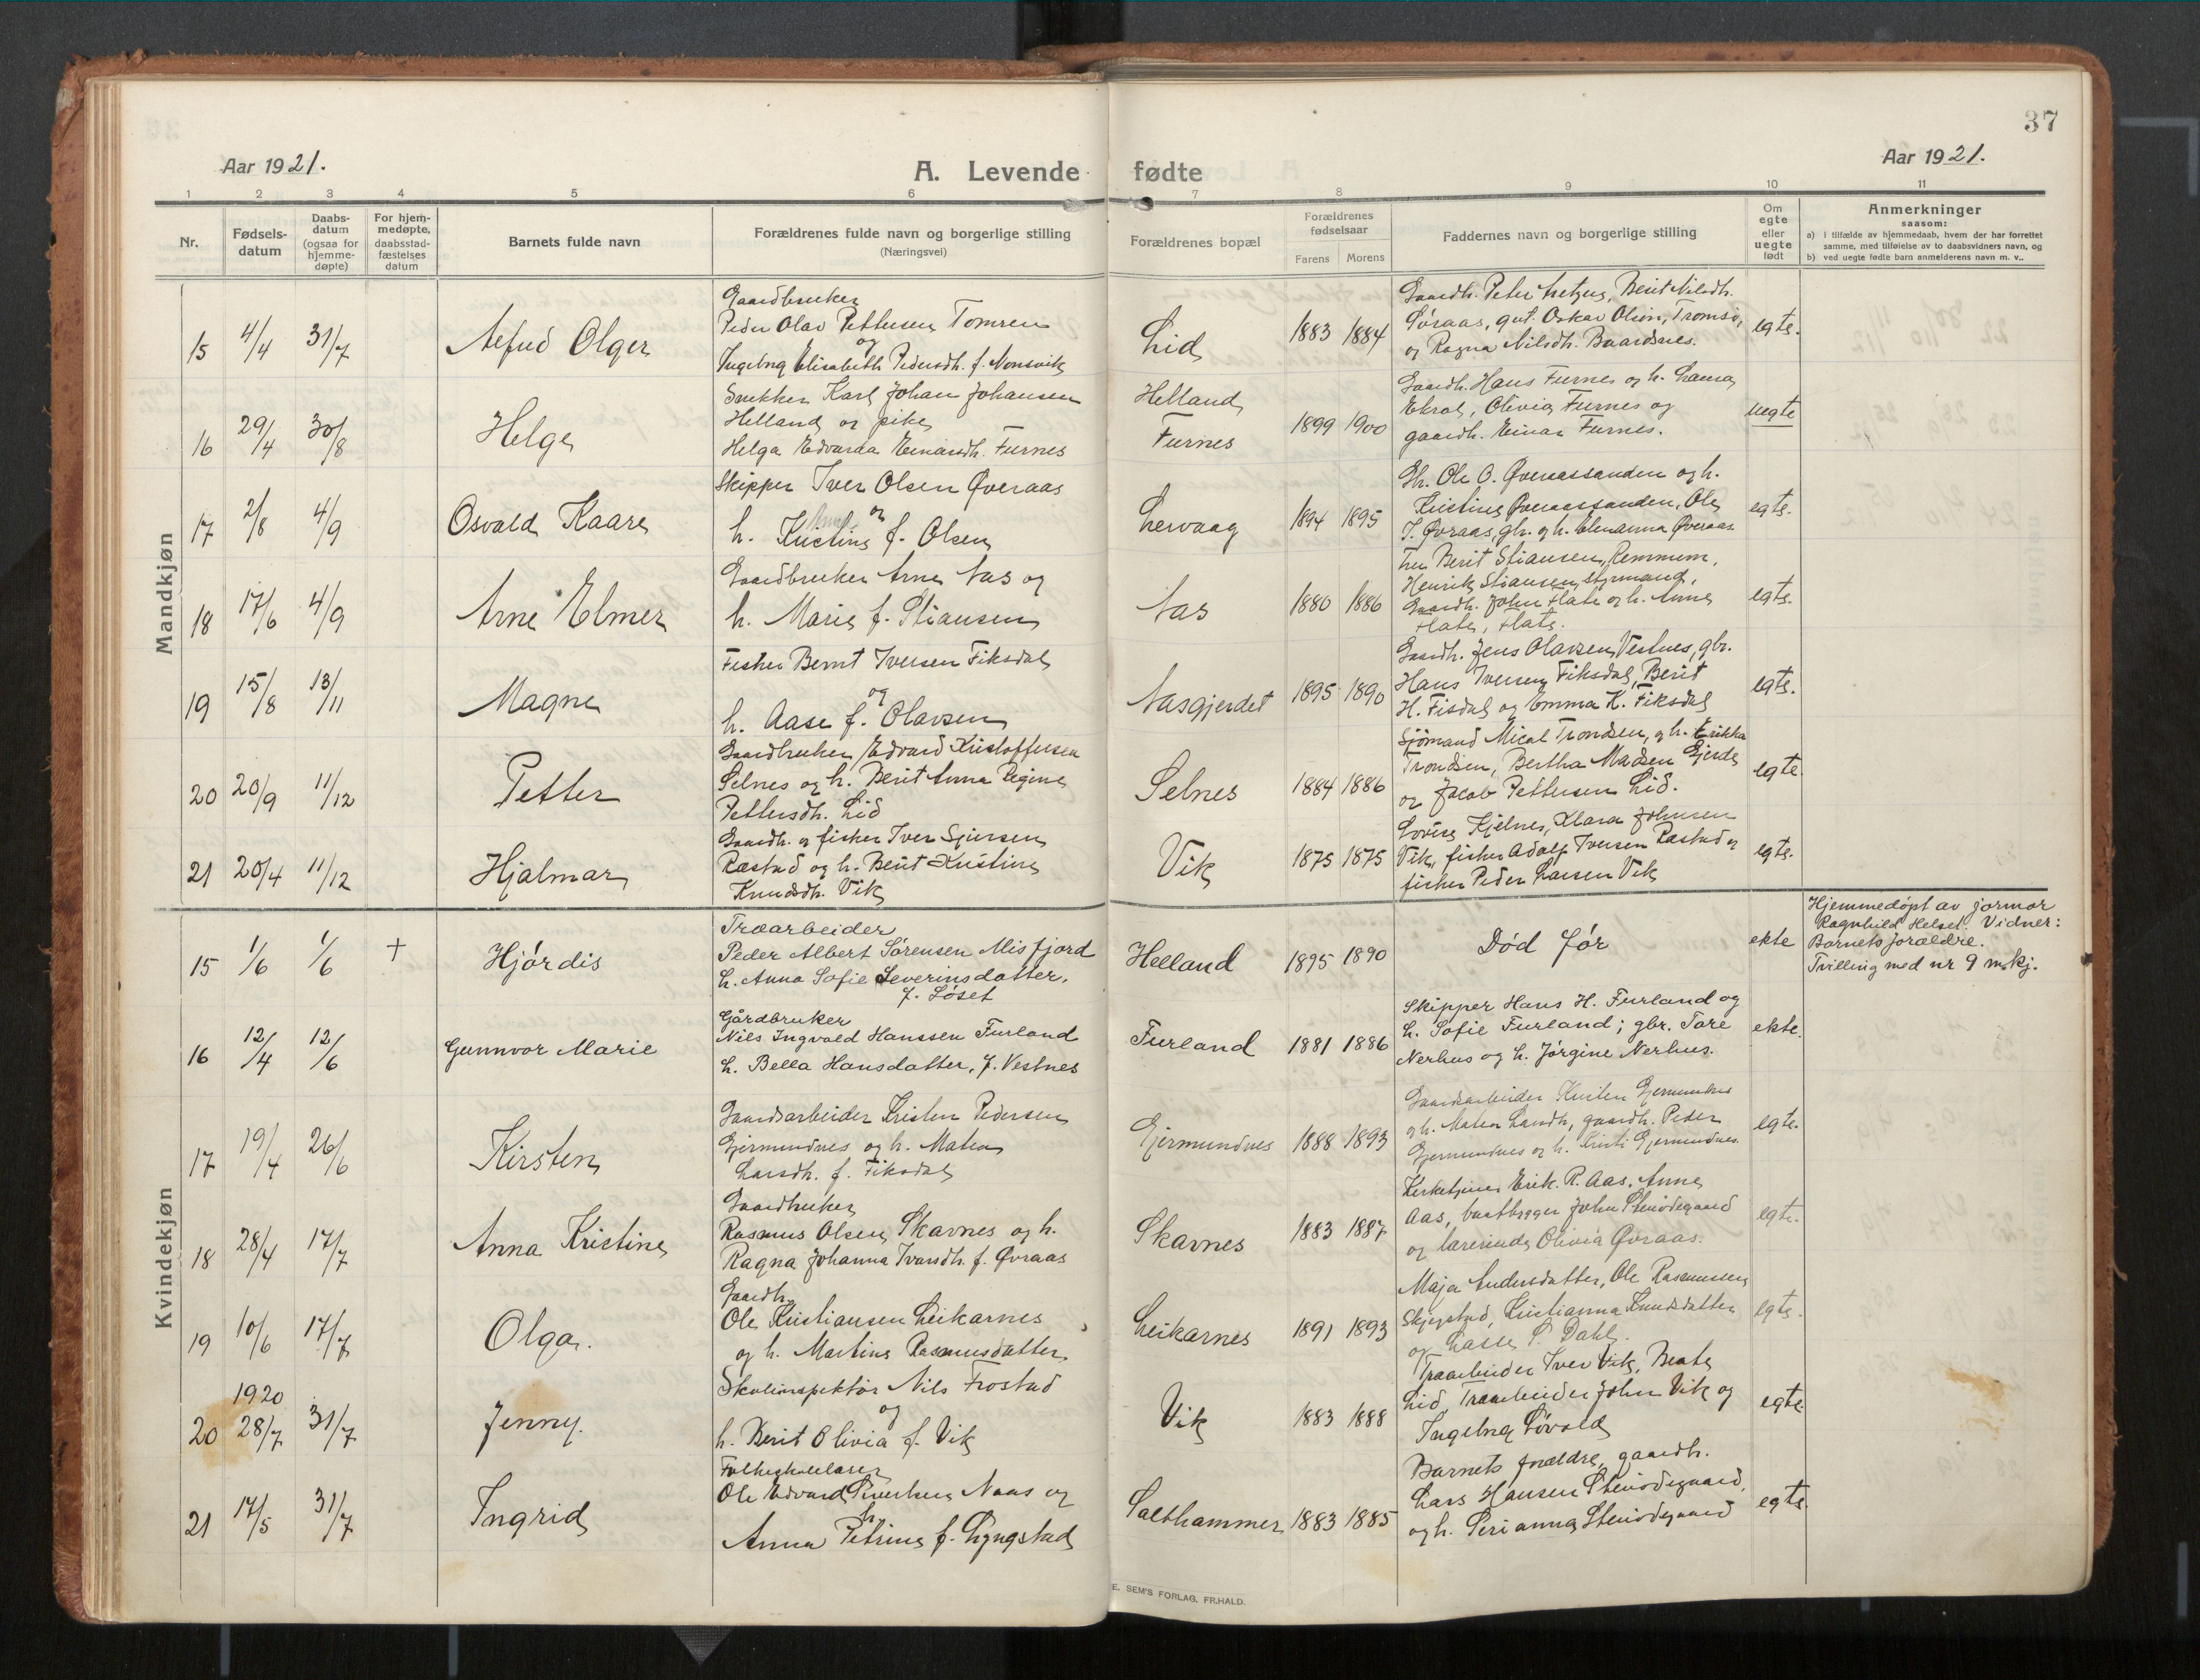 37
Aar 1921.
A. Levende fødte
Aar 1921.
1 2 3 4 5 6 7 8 9 10 11
Nr.
Fødsels-
datum
Daabs-
datum
(ogsaa for
hjemme-
døpte)
For hjem-
medøpte,
daabsstad-
fæstelses
datum
Barnets fulde navn
Forældrenes fulde navn og borgerlige stilling
(Næringsvei)
Forældrenes bopæl
Forældrenes
fødselsaar
Farens Morens
Faddernes navn og borgerlige stilling
Om
egte
eller
uegte
født
Anmerkninger
saasom:
a) i tilfælde av hjemmedaab, hvem der har forrettet
samme, med tilføielse av to daabsvidners navn, og
b) ved uegte fødte barn anmelderens navn m. v..
Mandkjøn
15 4/4 31/7
Olger
Gaardbruker
Peder Olav Pettersen Tomren
og
Ingebrg Elisabeth Pedersdtr. f. Nonsvik
Lid
1883 1884
Gaardbr. Peter, Berit Nilsdtr.
Søraas, gut. Oskar Olsen, Tromsø,
og Ragna Nilsdtr. Baardsnes.
egte.
16 29/4 30/8
Helge
Snekker Karl Johan Johansen
Helland og pike
Helga Edvarda Einarsdtr. Furnes
Helland
Furnes
1899 1900
Gaardbr. Hans Furnes og h. Laura
Ekrol, Olivia Furnes og
gaardbr. Einar Furnes.
uegte
17 2/8 4/9
Osvald Kaare
Skipper Iver Olsen Øveraas
og
h. Kristine f. Olsen
Lervaag
1894 1895
Gbr. Ole O. Øveraassanden og h.
Kristine Øveraassanden, Ole
I. Øvraas, gbr. og h. Elenanna Øveraas.
egte.
18 17/6 4/9
Arne Elmer
Gaardbruker Arne Aas og
h. Marie f. Stiansen
Aas
1880 1886
Fru Berit Stiansen, Remmem,
Henrik Stiansen, styrmand,
Gaardbr. John Flate og h. Anne
Flate, Flate.
egte.
19 15/8 13/11
Magne
Fisker Bernt Iversen Fiksdal
og
h. Aase f. Olavsen
Aasgjerdet
1895 1890
Gaardbr. Jens Olavsen Vestnes, gbr.
Hans Iversen Fiksdal, Berit
H. Fisdal og Emma K. Fiksdal
egte.
20 20/9 11/12
Petter
Gaardbruker Edvard Kristoffersen
Selnes og h. Berit Anna Regine
Pettersdtr. Lid
Selnes
1884 1886
Sjømand Mical Trondsen, og h. Erikka
Trondsen, Bertha Madsen Gjerde
og Jacob Pettersen Lid.
egte.
21 20/4 11/12
Hjalmar
Gaardbr. og fisker Iver Sjursen
Rastad og h. Berit Kristine
Knudsdtr. Vik
Vik
1875 1875
Lovise Kjelnes, Klara Johnsen
Vik, fisker Adolf Iversen Rastad og
fisker Peder Larsen Vik
egte.
Kvindekjøn
15 1/6 1/6 +
Hjørdis
Træarbeider
Peder Albert Sørensen Misfjord
h. Anna Sofie Severinsdatter,
f. Løset
Helland
1895 1890
Død før
ekte
Hjemmedøpt av jormor
Ragnhild Helset. Vidner:
Barnets forældre.
Tvilling med nr 9 m.kj.
16 12/4 12/6
Gunnvor Marie
Gårdbruker
Nils Ingvald Hanssen Furland
h. Bella Hansdatter, f. Vestnes
Furland
1881 1886
Skipper Hans H. Furland og
h. Sofie Furland; gbr. Tore
Nerhus og h. Jørgine Nerhus.
ekte.
17 19/4 26/6
Kirsten
Gaardsarbeider Kristen Pedersen
Gjermundnes og h. Matea
Larsdtr. f. Fiksdal
Gjermundnes
1888 1893
Gaardsarbeider Kristen Gjermundnes
og h. Matea Larsdtr, gaardbr. Peder
Gjermundnes og h. Kristi Gjermundnes.
egte.
18 28/4 17/7
Anna Kristine
Gaardbruker
Rasmus Olsen Skarnes og h.
Ragna Johanna Ivarsdtr. f. Øvraas
Skavnes
1883 1887
Kirketjener Erik. R. Aas, Anne
Aas, baatbygger John Stenødegaard
og lærerinde Olivia Øvraas.
egte.
19 10/6 17/7
Olga.
Gaardbr.
Ole Kristiansen Leikarnes
og h. Martine Rasmusdatter
Leikarnes
1891 1893
Maja Andersdatter, Ole Rasmussen
Skjegstad, Kristianna Knudsdatter
og Lasse P. Dahl.
egte.
20 1920 28/7 31/7
Jenny.
Skoleinspektør Nils Frostad
og
h. Berit Olivia f. Vik
Vik
1883 1888
Træarbeider Iver Vik, Beate
Lid, Træarbeider John Vik og
Ingebrg Løvold
egte
21 17/5 31/7
Ingrid
Folkeskolelærer
Ole Edvard Sivertsen Naas og
h.
Anna Petrine f. Lyngstad
Salthammer
1883 1885
Barnets forældre, gaardbr.
Lars Hansen Stenødegaard,
og h. Serianna Stenødegaard
egte.
E. SEM'S FORLAG, FR.HALD.